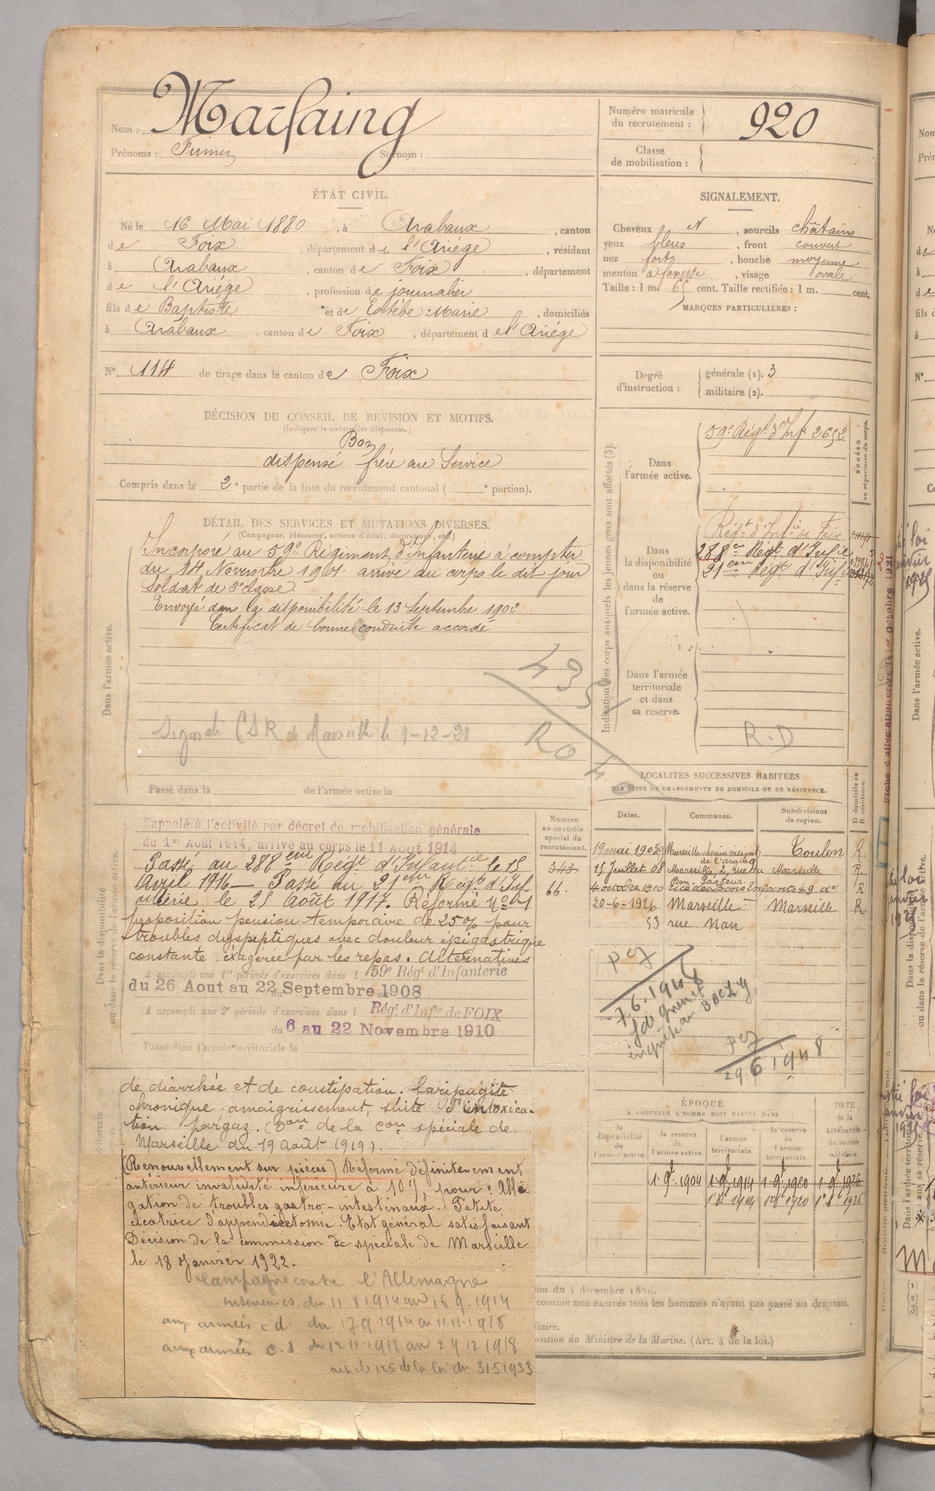 Nom : Marfaing
Prénoms : Firmin Surnom :
Numéro matricule du recrutement : 920
Classe de mobilisation :
ÉTAT CIVIL.
Né le 16 Mai 1880, à Arabaux, canton
de Foix, département de l'Ariège, résidant
à Arabaux, canton de Foix, département
de l'Ariège, profession de journalier
fils de Baptiste et de Estèbe Marie, domiciliés
à Arabaux, canton de Foix, département de l'Ariège
N° 114 de tirage dans le canton de Foix
SIGNALEMENT.
Cheveux N, sourcils châtains
yeux bleus, front couvert
nez fort, bouche moyenne
menton à fossette, visage ovale
Taille : 1 m. 65 cent. Taille rectifiée : 1 m. cent.
MARQUES PARTICULIÈRES :
Degré d'instruction : générale (1). 3
militaire (2).
DÉCISION DU CONSEIL DE REVISION ET MOTIFS.
(Indiquer la nature des dispenses.)
Bon
dispensé frère au Service
Compris dans la 2e partie de la liste du recrutement cantonal ( e portion).
DÉTAIL DES SERVICES ET MUTATIONS DIVERSES.
(Campagnes, blessures, actions d'éclat, décorations, etc.)
Dans l'armée active.
Incorporé au 59e Régiment d'Infanterie à compter
du 14 Novembre 1901 arrivé au corps le dit jour
Soldat de 2e classe
Envoyé dans la disponibilité le 13 Septembre 1902
Certificat de bonne conduite accordé
435
R0
CSR de Marseille le 1-12-21
Passé dans la de l'armée active le
Indication des corps auxquels les jeunes gens sont affectés (3).
Dans l'armée active.
59e Régt d'Inf. 2652
NUMÉRO au répertoire du corps.
Dans la disponibilité ou dans la réserve de l'armée active.
Régt d'Infie de Foix
288e Régt d'Infie
21eme Régt d'Infie
Dans l'armée territoriale et dans sa réserve.
R.D
LOCALITÉS SUCCESSIVES HABITÉES
PAR SUITE DE CHANGEMENTS DE DOMICILE OU DE RÉSIDENCE.
Numéro au contrôle spécial du recrutement.
343.
66.
Dates. Communes. Subdivisions de region. D domicile ou R résidence.
19 mai 1903 Marseille chemin vicinal de l'argile Toulon R
15 Juillet 08 Marseille, 2, rue du Bon-Pasteur Marseille R
4 octobre 1910 rue des Bons Enfants 49 do R
20-6-1926 Marseille Marseille R
53 rue Nau
7.6.1946
29 6 1948
Dans la disponibilité ou dans la réserve de l'armée active.
Rappelé à l'activité par décret de mobilisation générale
du 1er Août 1914, arrivé au corps le 11 Août 1914
Passé au 288eme Régt d'Infantie le 18
Avril 1916 — Passé au 21eme Régt d'Inf
anterie le 21 Août 1917. Réformé No 1
proposition pension temporaire de 25% pour
troubles dyspeptiques avec douleur épigastrique
constante exagérée par les repas. Alternatives
A accompli une 1re période d'exercices dans l 59e Régt d'Infanterie
du 26 Aout au 22 Septembre 1908
A accompli une 2e période d'exercices dans l Régt d'Infie de FOIX
du 6 au 22 Novembre 1910
Passé dans l'armée territoriale le
de diarrhée et de constipation. Laryngite
chronique, amaigrissement, suite d'intoxica-
tion par gaz. (Don de la Con spéciale de
Marseille du 19 août 1919).
(Renouvellement sur pièces) Réformé définitivement
antérieur invalidité inférieure à 10% pour : Allé
gation de troubles gastro-intestinaux. Petite
cicatrice d'appendicectomie. Etat général satisfaisant
Décision de la commission de spéciale de Marseille
le 18 Janvier 1922.
Campagne contre l'Allemagne
intérieur cs du 11.8.1914 au 16.9.1914
aux armées c d du 17 9 1914 au 11-11-1918
aux armées c.s du 12 11 1918 au 24 12 1918
art le 125 de la loi du 31 5 1933
ÉPOQUE
À LAQUELLE L'HOMME DOIT PASSER DANS
la disponibilité de l'armée active. la réserve de l'armée active. l'armée territoriale. la réserve de l'armée territoriale. DATE de la LIBÉRATION du service militaire.
1 9bre 1904 1 9bre 1914 1 9bre 1920 1 9bre 1926
ion du 4 décembre 1889.
comme non exercés tous les hommes n'ayant pas passé au drapeau.
osition du Ministre de la Marine. (Art. 4 de la loi.)